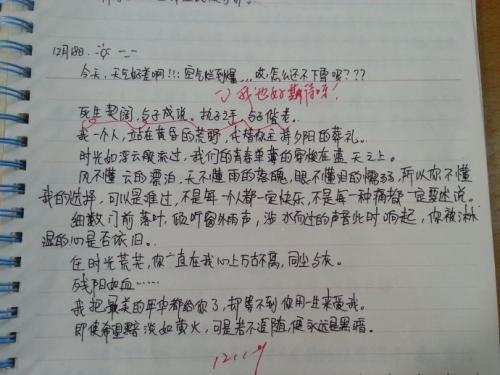 12月18日. 
今天,天气好差啊!!! 空气烂到爆... 哎,怎么还不下雪呢???
我也好期待呀!
死生契阔,与子成说。执子之手,与子偕老。
我一个人,站在黄昏的荒野,代替你主持夕阳的葬礼。
时光如浮云般流过,我们的青春单薄的穿梭在蓝天之上。
风不懂云的漂泊,天不懂雨的落魄,眼不懂泪的懦弱,所以你不懂
我的选择,可以是难过,不是每一个人都一定快乐,不是每一种痛都一定要述说。
细数门前落叶,倾听窗外雨声,涉水而过的声音此时响起,你被淋
湿的心是否依旧。
任时光荒芜,你一直在我心上万古不离,同尘与灰。
残阳如血……
我把最美的年华都给你了,却等不到你用一生来爱我。
即使希望黯淡如萤火,可是若不追随,便永远是黑暗。
12.19